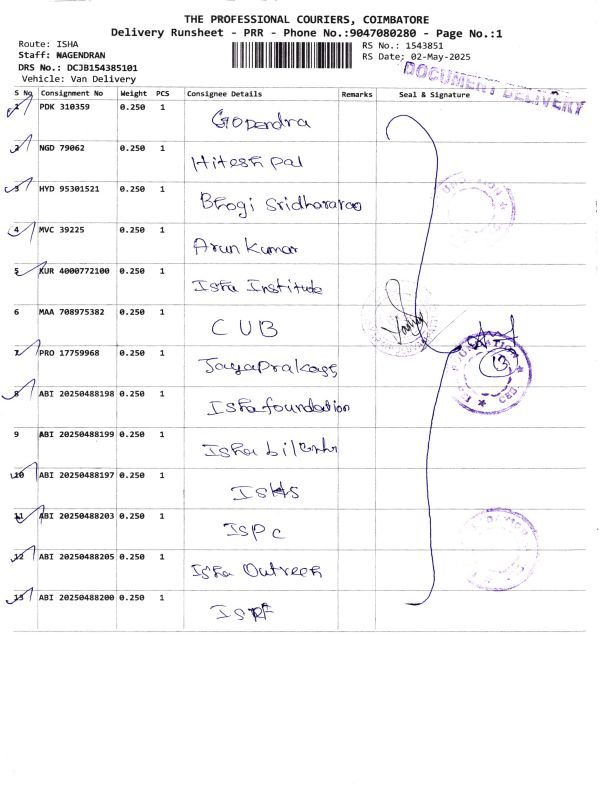 THE PROFESSIONAL COURIERS, COIMBATORE
Delivery Runsheet - PRR - Phone No.:9047080280 - Page No.:1
Route: ISHA
Staff: NAGENDRAN
DRS No.: DCJB154385101
Vehicle: Van Delivery
RS No.: 1543851
RS Date: 02-May-2025
DOCUMENT DELIVERY
S No Consignment No Weight PCS Consignee Details Remarks Seal & Signature
1 PDK 310359 0.250 1 Gopendra
2 NGD 79062 0.250 1 Hitesh pal
3 HYD 95301521 0.250 1 Bhogi Sridhararao
4 MVC 39225 0.250 1 Arun Kumar
5 KUR 4000772100 0.250 1 Isha Institude
6 MAA 708975382 0.250 1 CUB
7 PRO 17759968 0.250 1 Jayaprakash
8 ABI 20250488198 0.250 1 Isha foundation
9 ABI 20250488199 0.250 1 Isha
10 ABI 20250488197 0.250 1 ISHS
11 ABI 20250488203 0.250 1 ISPC
12 ABI 20250488205 0.250 1 Isha Outreeh
13 ABI 20250488200 0.250 1
13